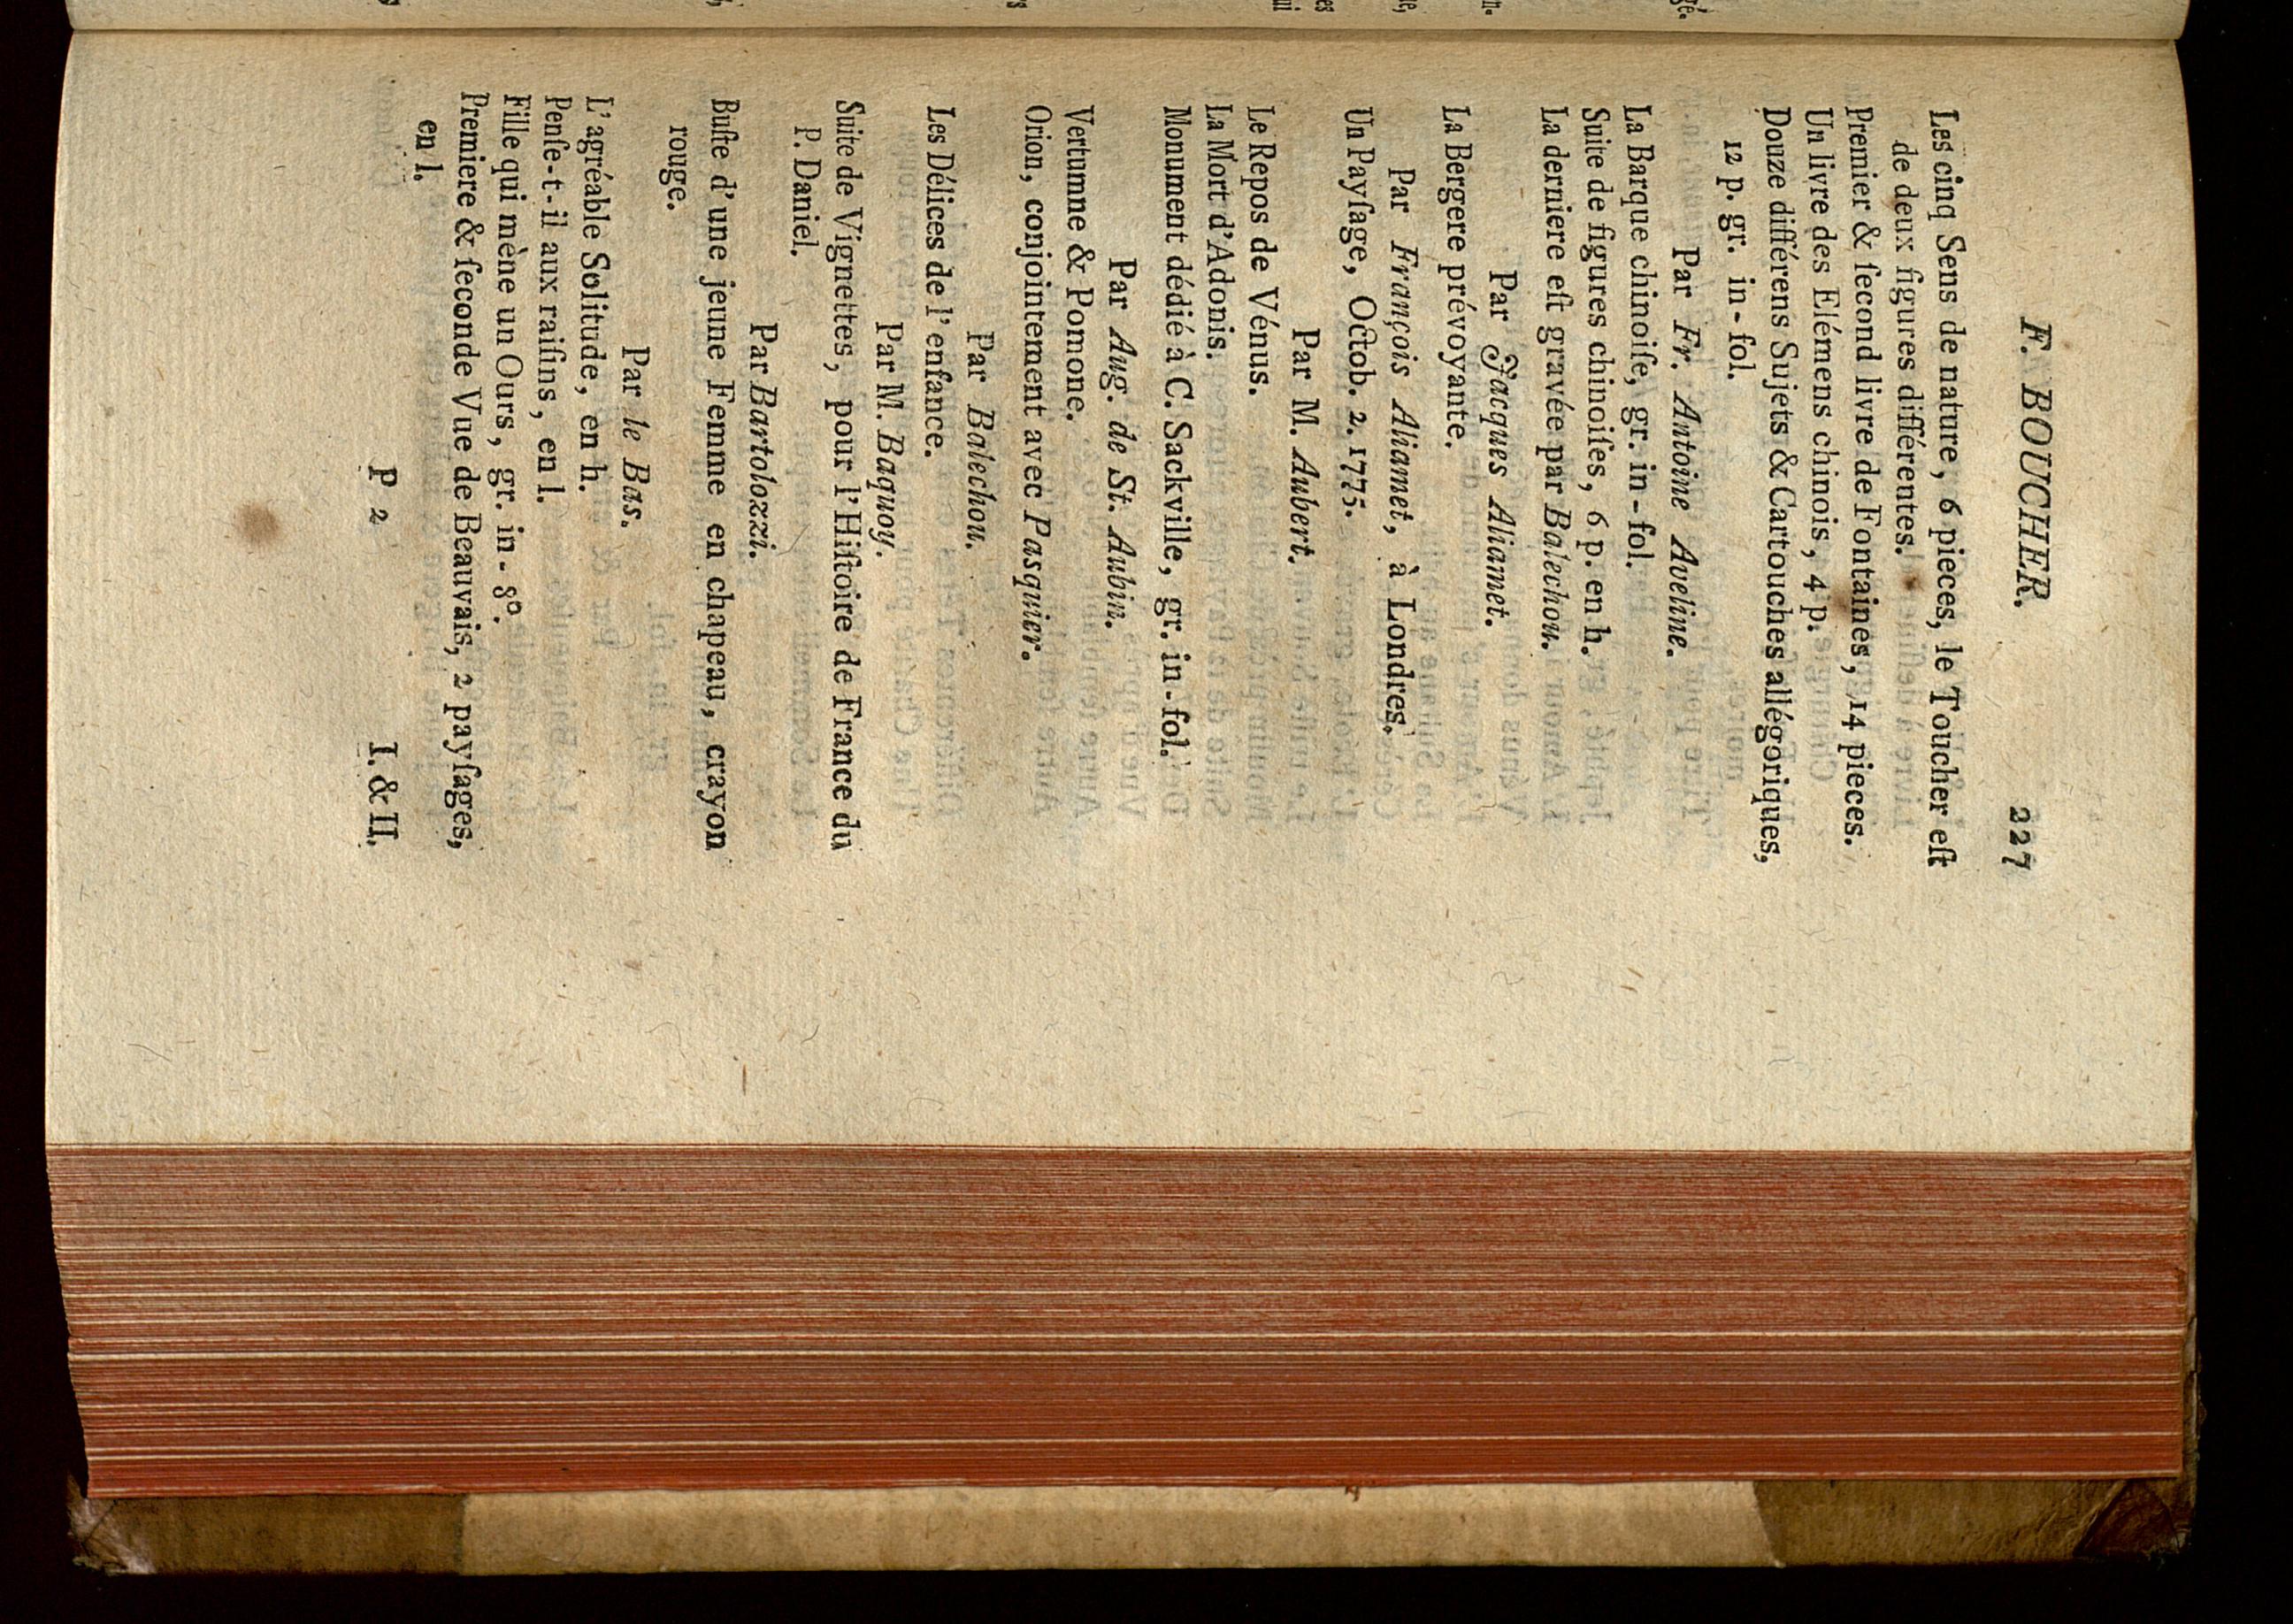 F. BOUCHER. 227
Les cinq Sens de nature, 6 pieces, le Toucher eſt
de deux figures différentes.
Premier & ſecond livre de Fontaines, 14 pieces.
Un livre des Elémens chinois, 4 p.
Douze différens Sujets & Cartouches allégoriques,
12 p. gr. in-fol.
Par Fr. Antoine Aveline.
La Barque chinoiſe, gr. in-fol.
Suite de figures chinoiſes, 6 p. en h.
La derniere eſt gravée par Balechou.
Par Jacques Aliamet.
La Bergere prévoyante.
Par François Aliamet, à Londres.
Un Payſage, Octob. 2. 1775.
Par M. Aubert.
Le Repos de Vénus.
La Mort d'Adonis.
Monument dédié à C. Sackville, gr. in-fol.
Par Aug. de St. Aubin.
Vertumne & Pomone.
Orion, conjointement avec Pasquier.
Par Balechou.
Les Délices de l'enfance.
Par M. Baquoy.
Suite de Vignettes, pour l'Hiſtoire de France du
P. Daniel.
Par Bartolozzi.
Buſte d'une jeune Femme en chapeau, crayon
rouge.
Par le Bas.
L'agréable Solitude, en h.
Penſe-t-il aux raiſins, en l.
Fille qui mène un Ours, gr. in-8°.
Premiere & ſeconde Vue de Beauvais, 2 payſages,
en l.
P 2 I. & II.